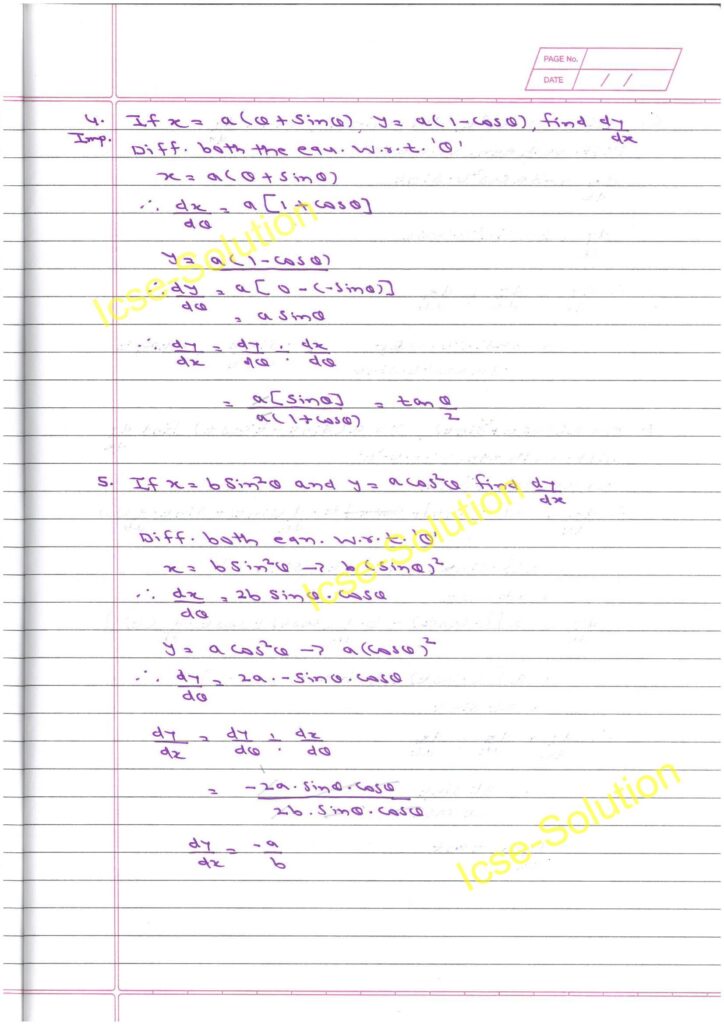 PAGE No.
DATE / /
4. If x = a(θ + sinθ), y = a(1 - cosθ), find dy/dx
Imp. Diff. both the equ. w.r.t. 'θ'
x = a(θ + sinθ)
∴ dx/dθ = a[1 + cosθ]
y = a(1 - cosθ)
∴ dy/dθ = a[0 - (-sinθ)]
= a sinθ
∴ dy/dx = dy/dθ ÷ dx/dθ
= a[sinθ]/a(1 + cosθ) = tan θ/2
5. If x = b sin²θ and y = a cos²θ find dy/dx
Diff. both eqn. w.r.t. 'θ'
x = b sin²θ → b(sinθ)²
∴ dx/dθ = 2b sinθ · cosθ
y = a cos²θ → a(cosθ)²
∴ dy/dθ = 2a · -sinθ · cosθ
dy/dx = dy/dθ ÷ dx/dθ
= -2a · sinθ · cosθ/2b · sinθ · cosθ
dy/dx = -a/b
Icse-Solution
Icse-Solution
Icse-Solution